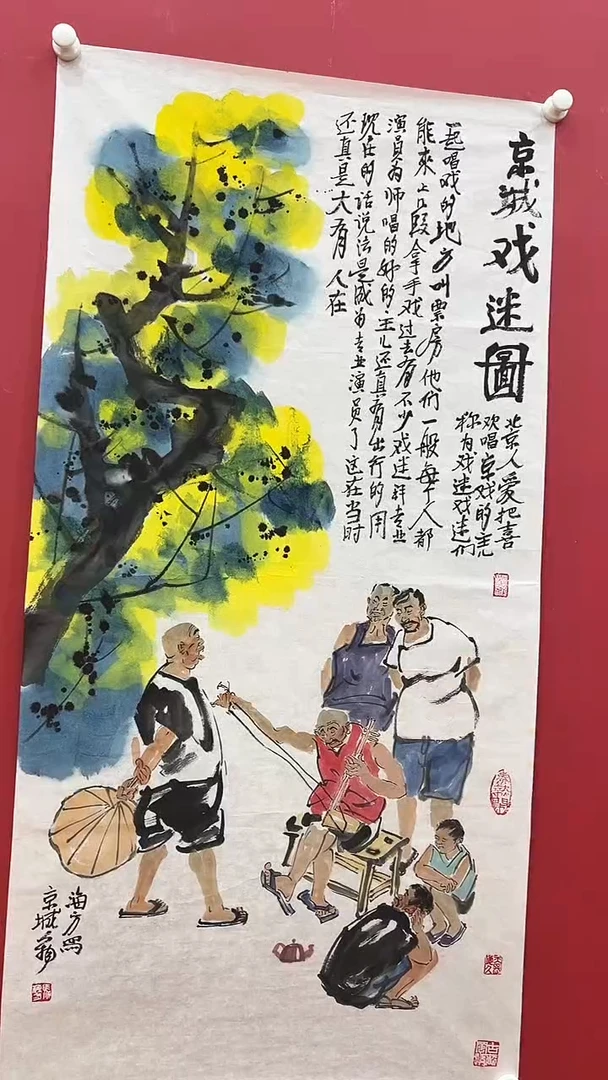 京城戏迷圖
北京人爱把喜
欢唱京戏的主儿
称为戏迷戏迷们
一起唱戏的地方叫票房他们一般每个人都
能來上几段拿手戏过去有不少戏迷拜专业
演员为师唱的好的主儿还真有出行的用
现在的话说法是成为专业演员了这在当时
还真是大有人在
海方写
京城